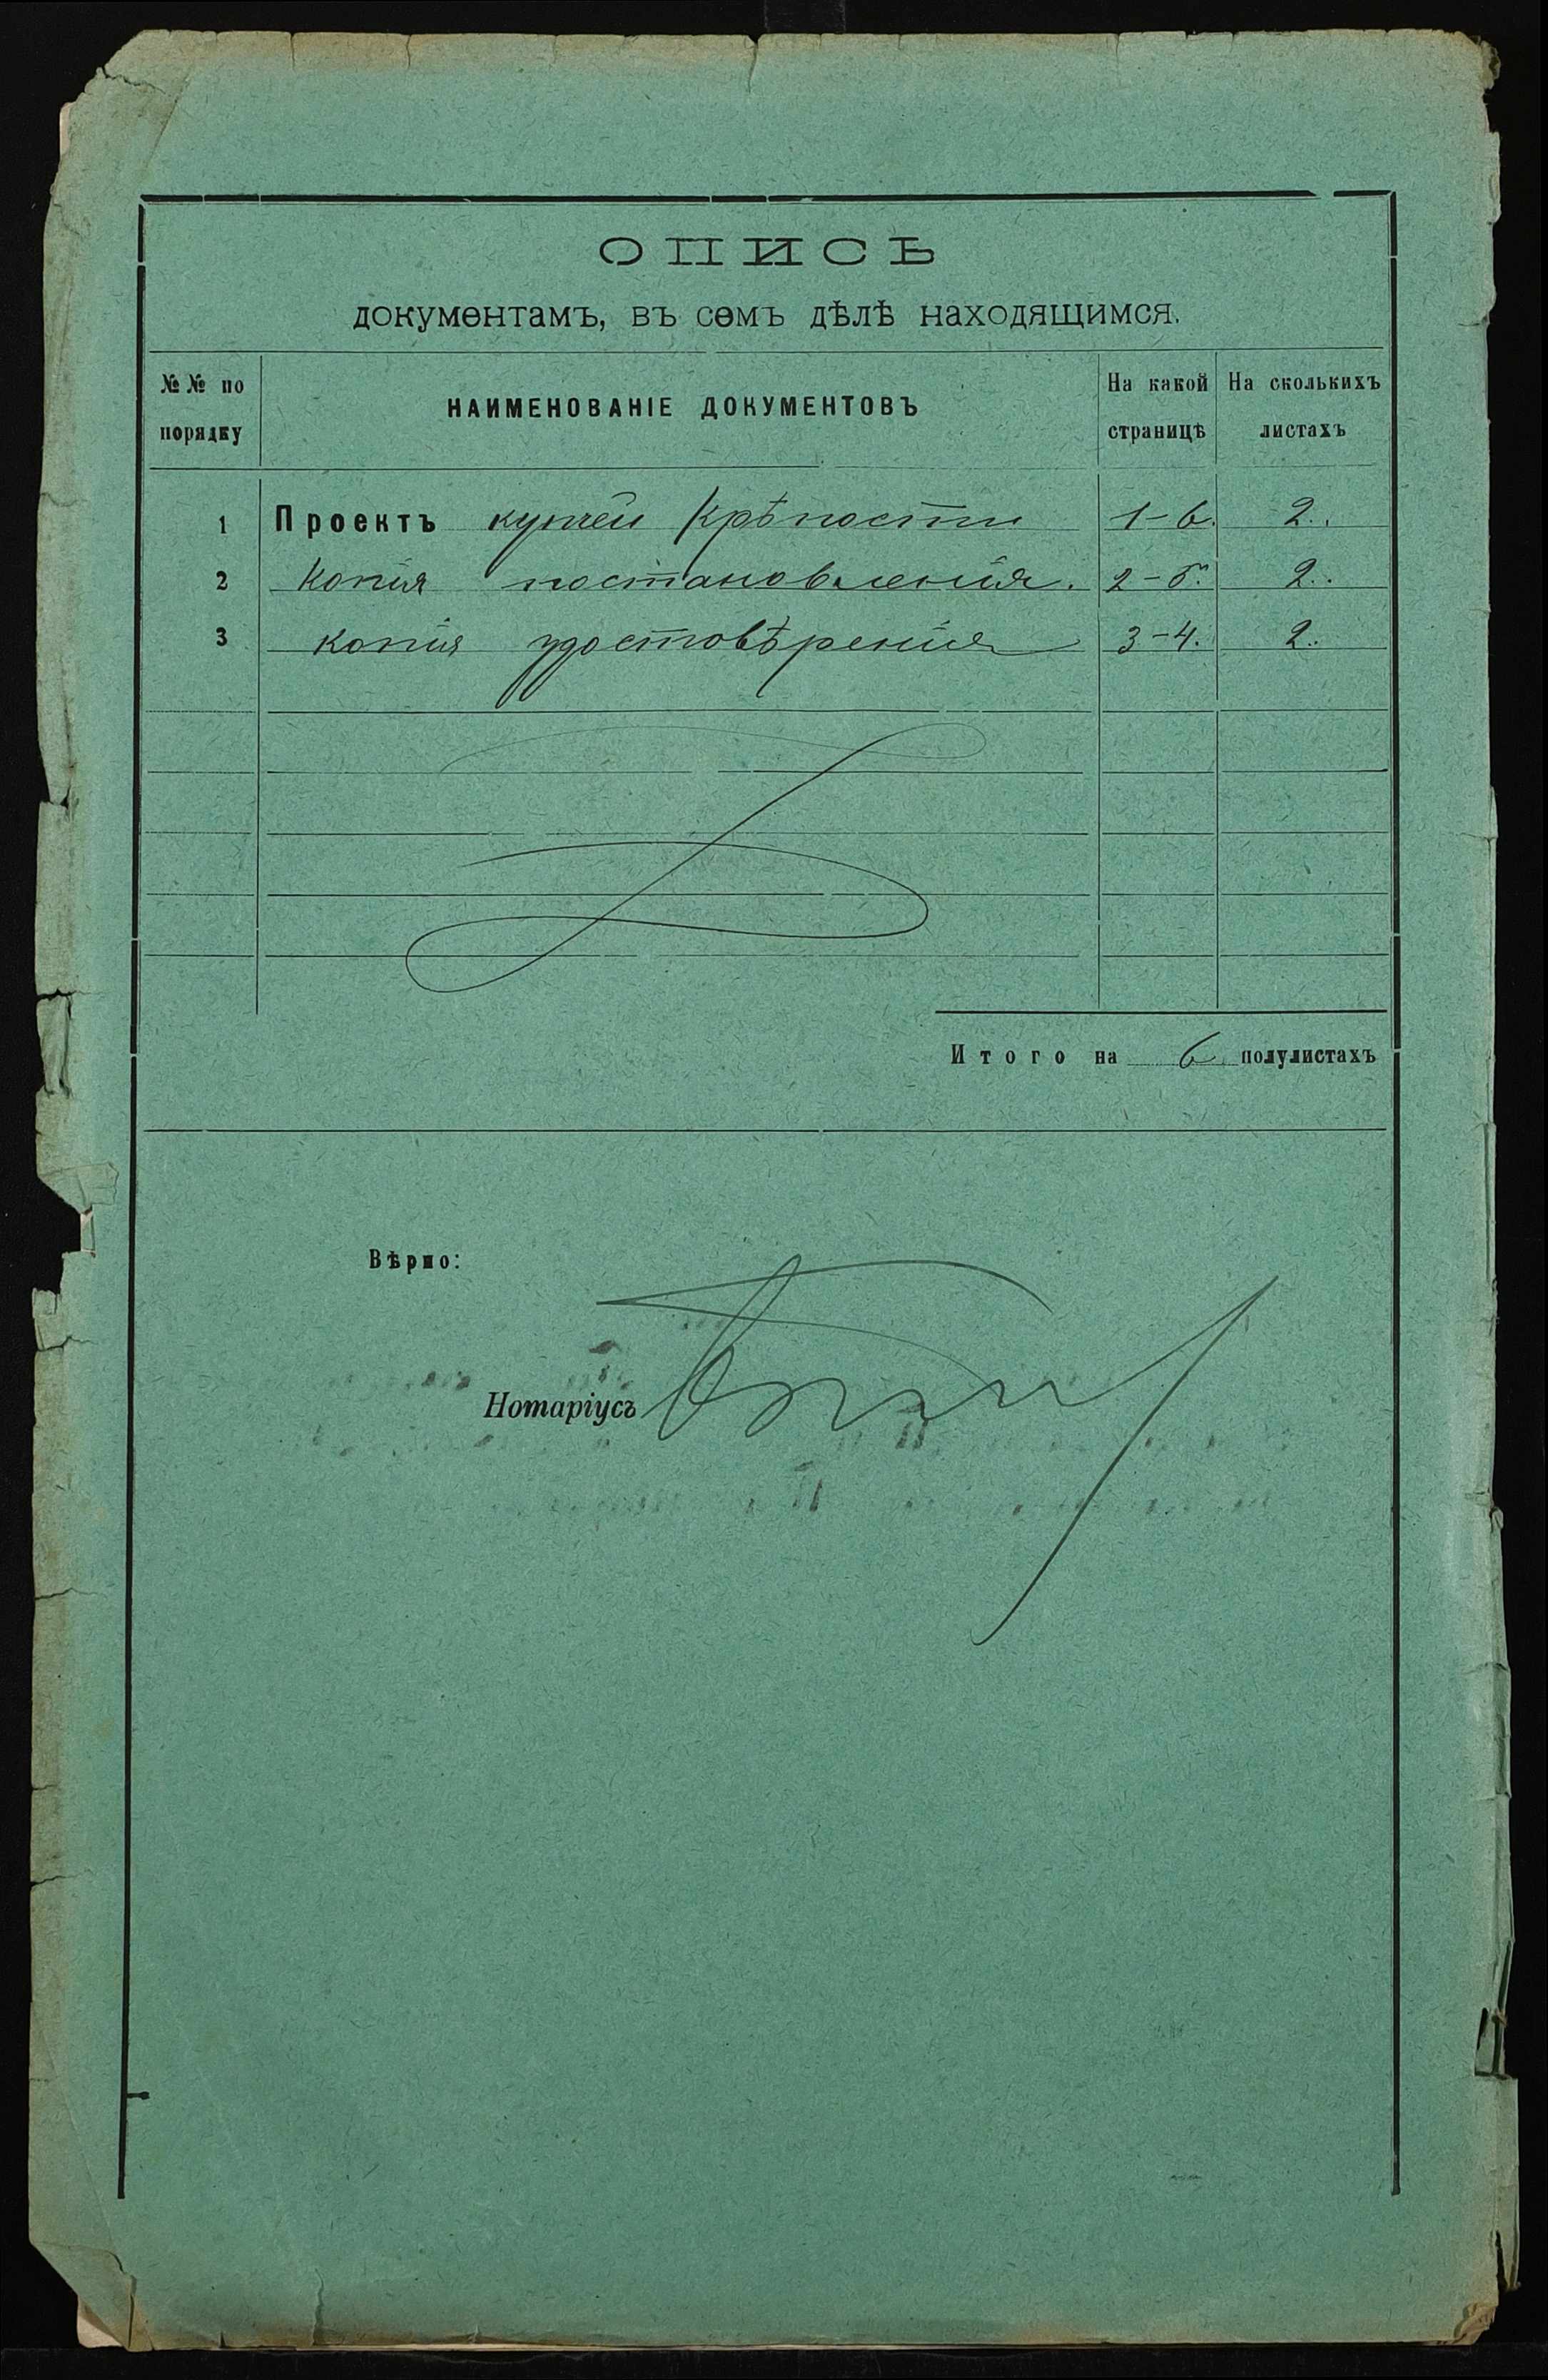 ОПИСЬ
документамъ, въ семъ дѣлѣ находящимся.
№№ по порядку
НАИМЕНОВАНІЕ ДОКУМЕНТОВЪ
На какой страницѣ
На сколькихъ листахъ
1 Проектъ купчей крѣпости 1-6. 2..
2 Копія постановленія. 2-5. 2..
3 копія удостовѣренія 3-4. 2.
Итого на 6 полулистахъ
Вѣрно:
Нотаріусъ